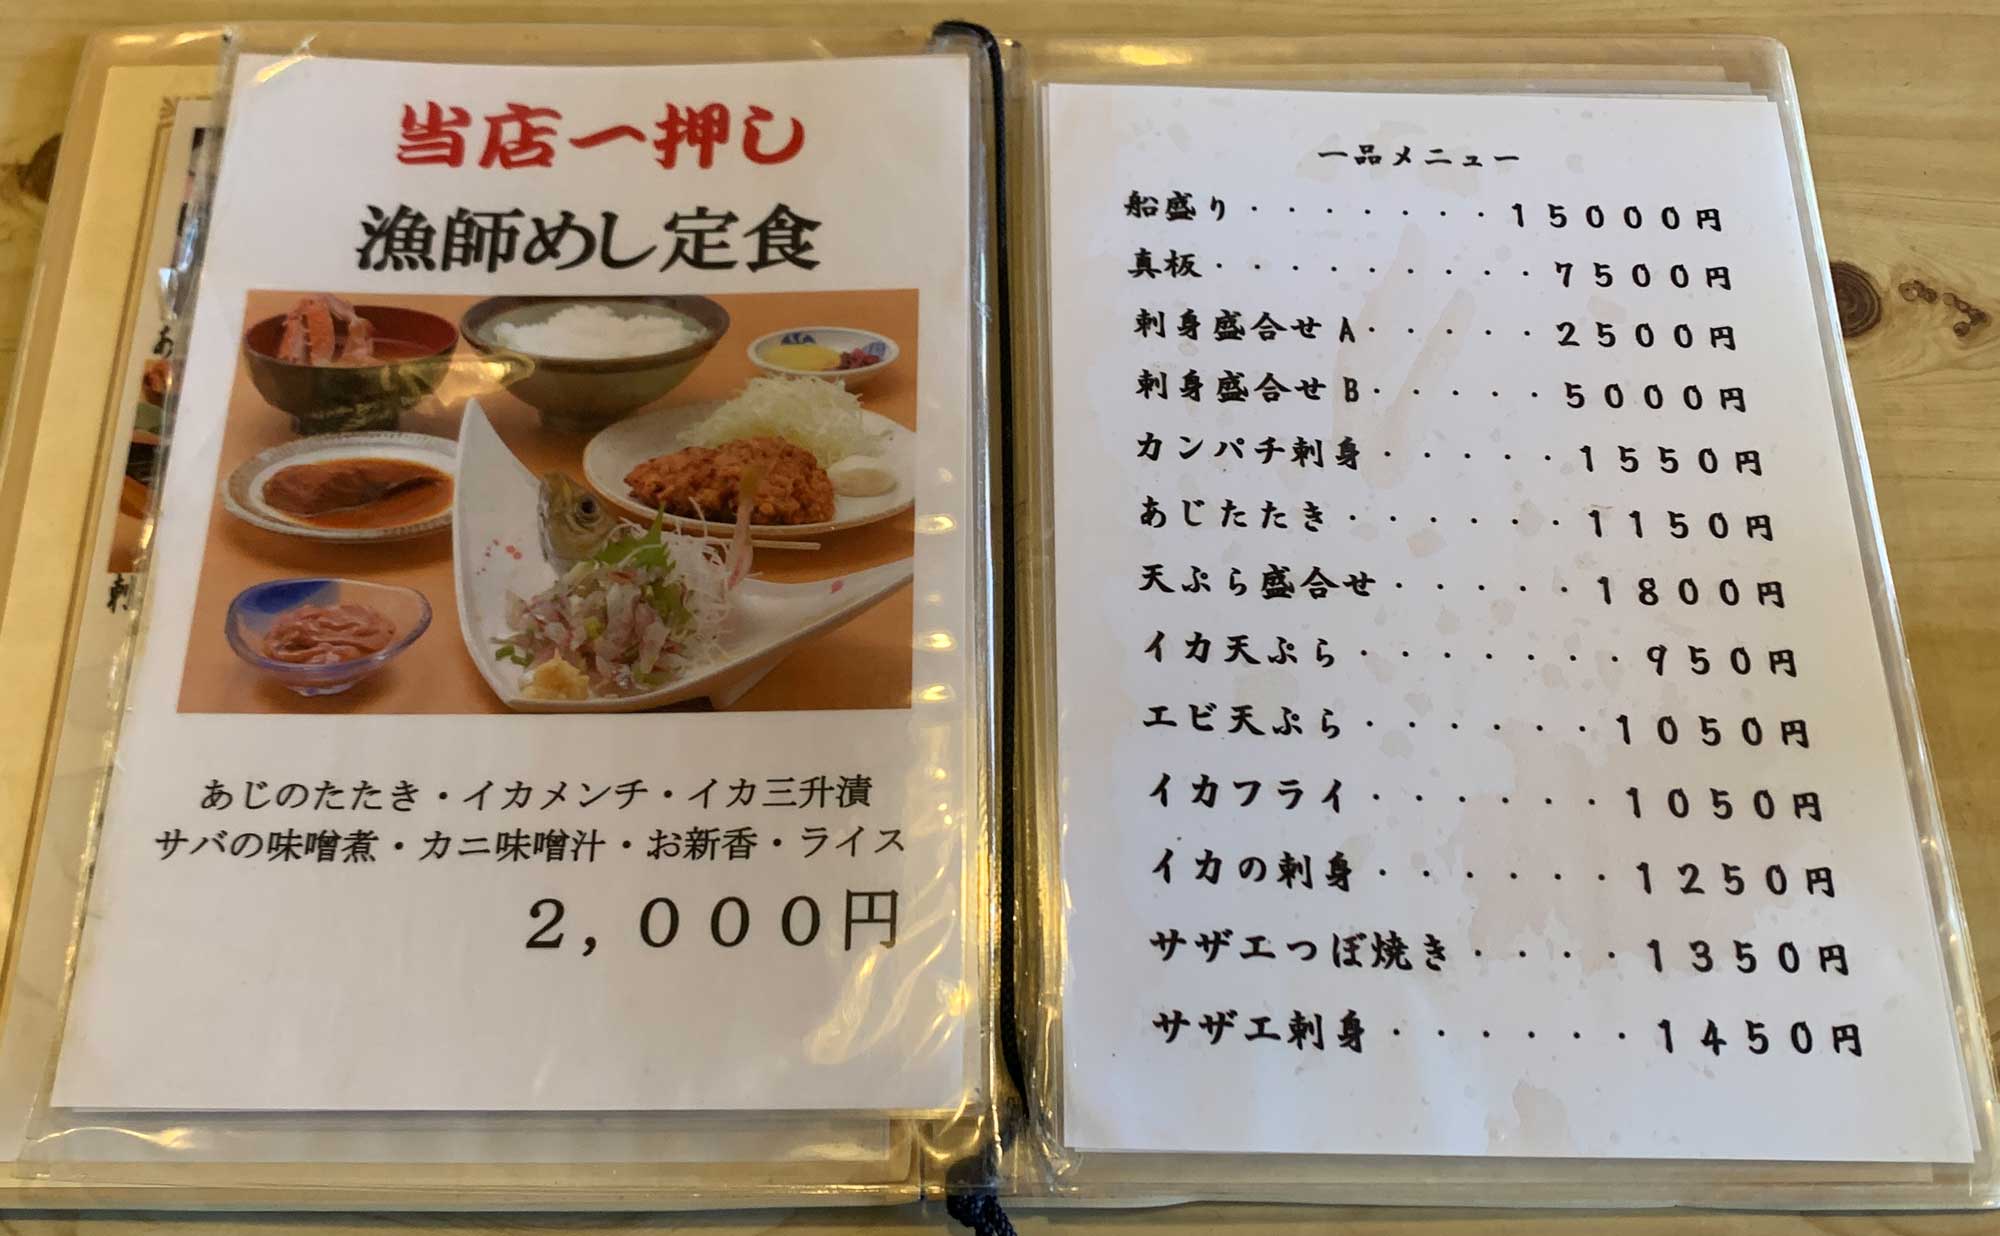 当店一押し
漁師めし定食
あじのたたき・イカメンチ・イカ三升漬
サバの味噌煮・カニ味噌汁・お新香・ライス
2,000円
あ
刺
一品メニュー
船盛り・・・・・・・15000円
真板・・・・・・・・・7500円
刺身盛合せA・・・・・2500円
刺身盛合せB・・・・・5000円
カンパチ刺身・・・・・1550円
あじたたき・・・・・・1150円
天ぷら盛合せ・・・・・1800円
イカ天ぷら・・・・・・・950円
エビ天ぷら・・・・・・1050円
イカフライ・・・・・・1050円
イカの刺身・・・・・・1250円
サザエつぼ焼き・・・・1350円
サザエ刺身・・・・・・1450円